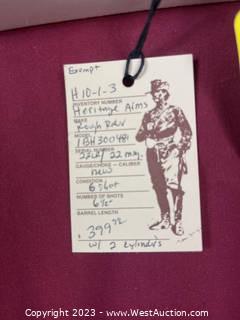 Exempt
H10-1-3
INVENTORY NUMBER
Heritage Arms
MAKE
Rough Rider
MODEL
1BH300481
SERIAL NUMBER
22LR/22 mag
GAUGE/CHOKE - CALIBER
new
CONDITION
6 shot
NUMBER OF SHOTS
6½"
BARREL LENGTH
$ 399.95
w/ 2 cylinders
Copyright © 2023 - www.WestAuction.com